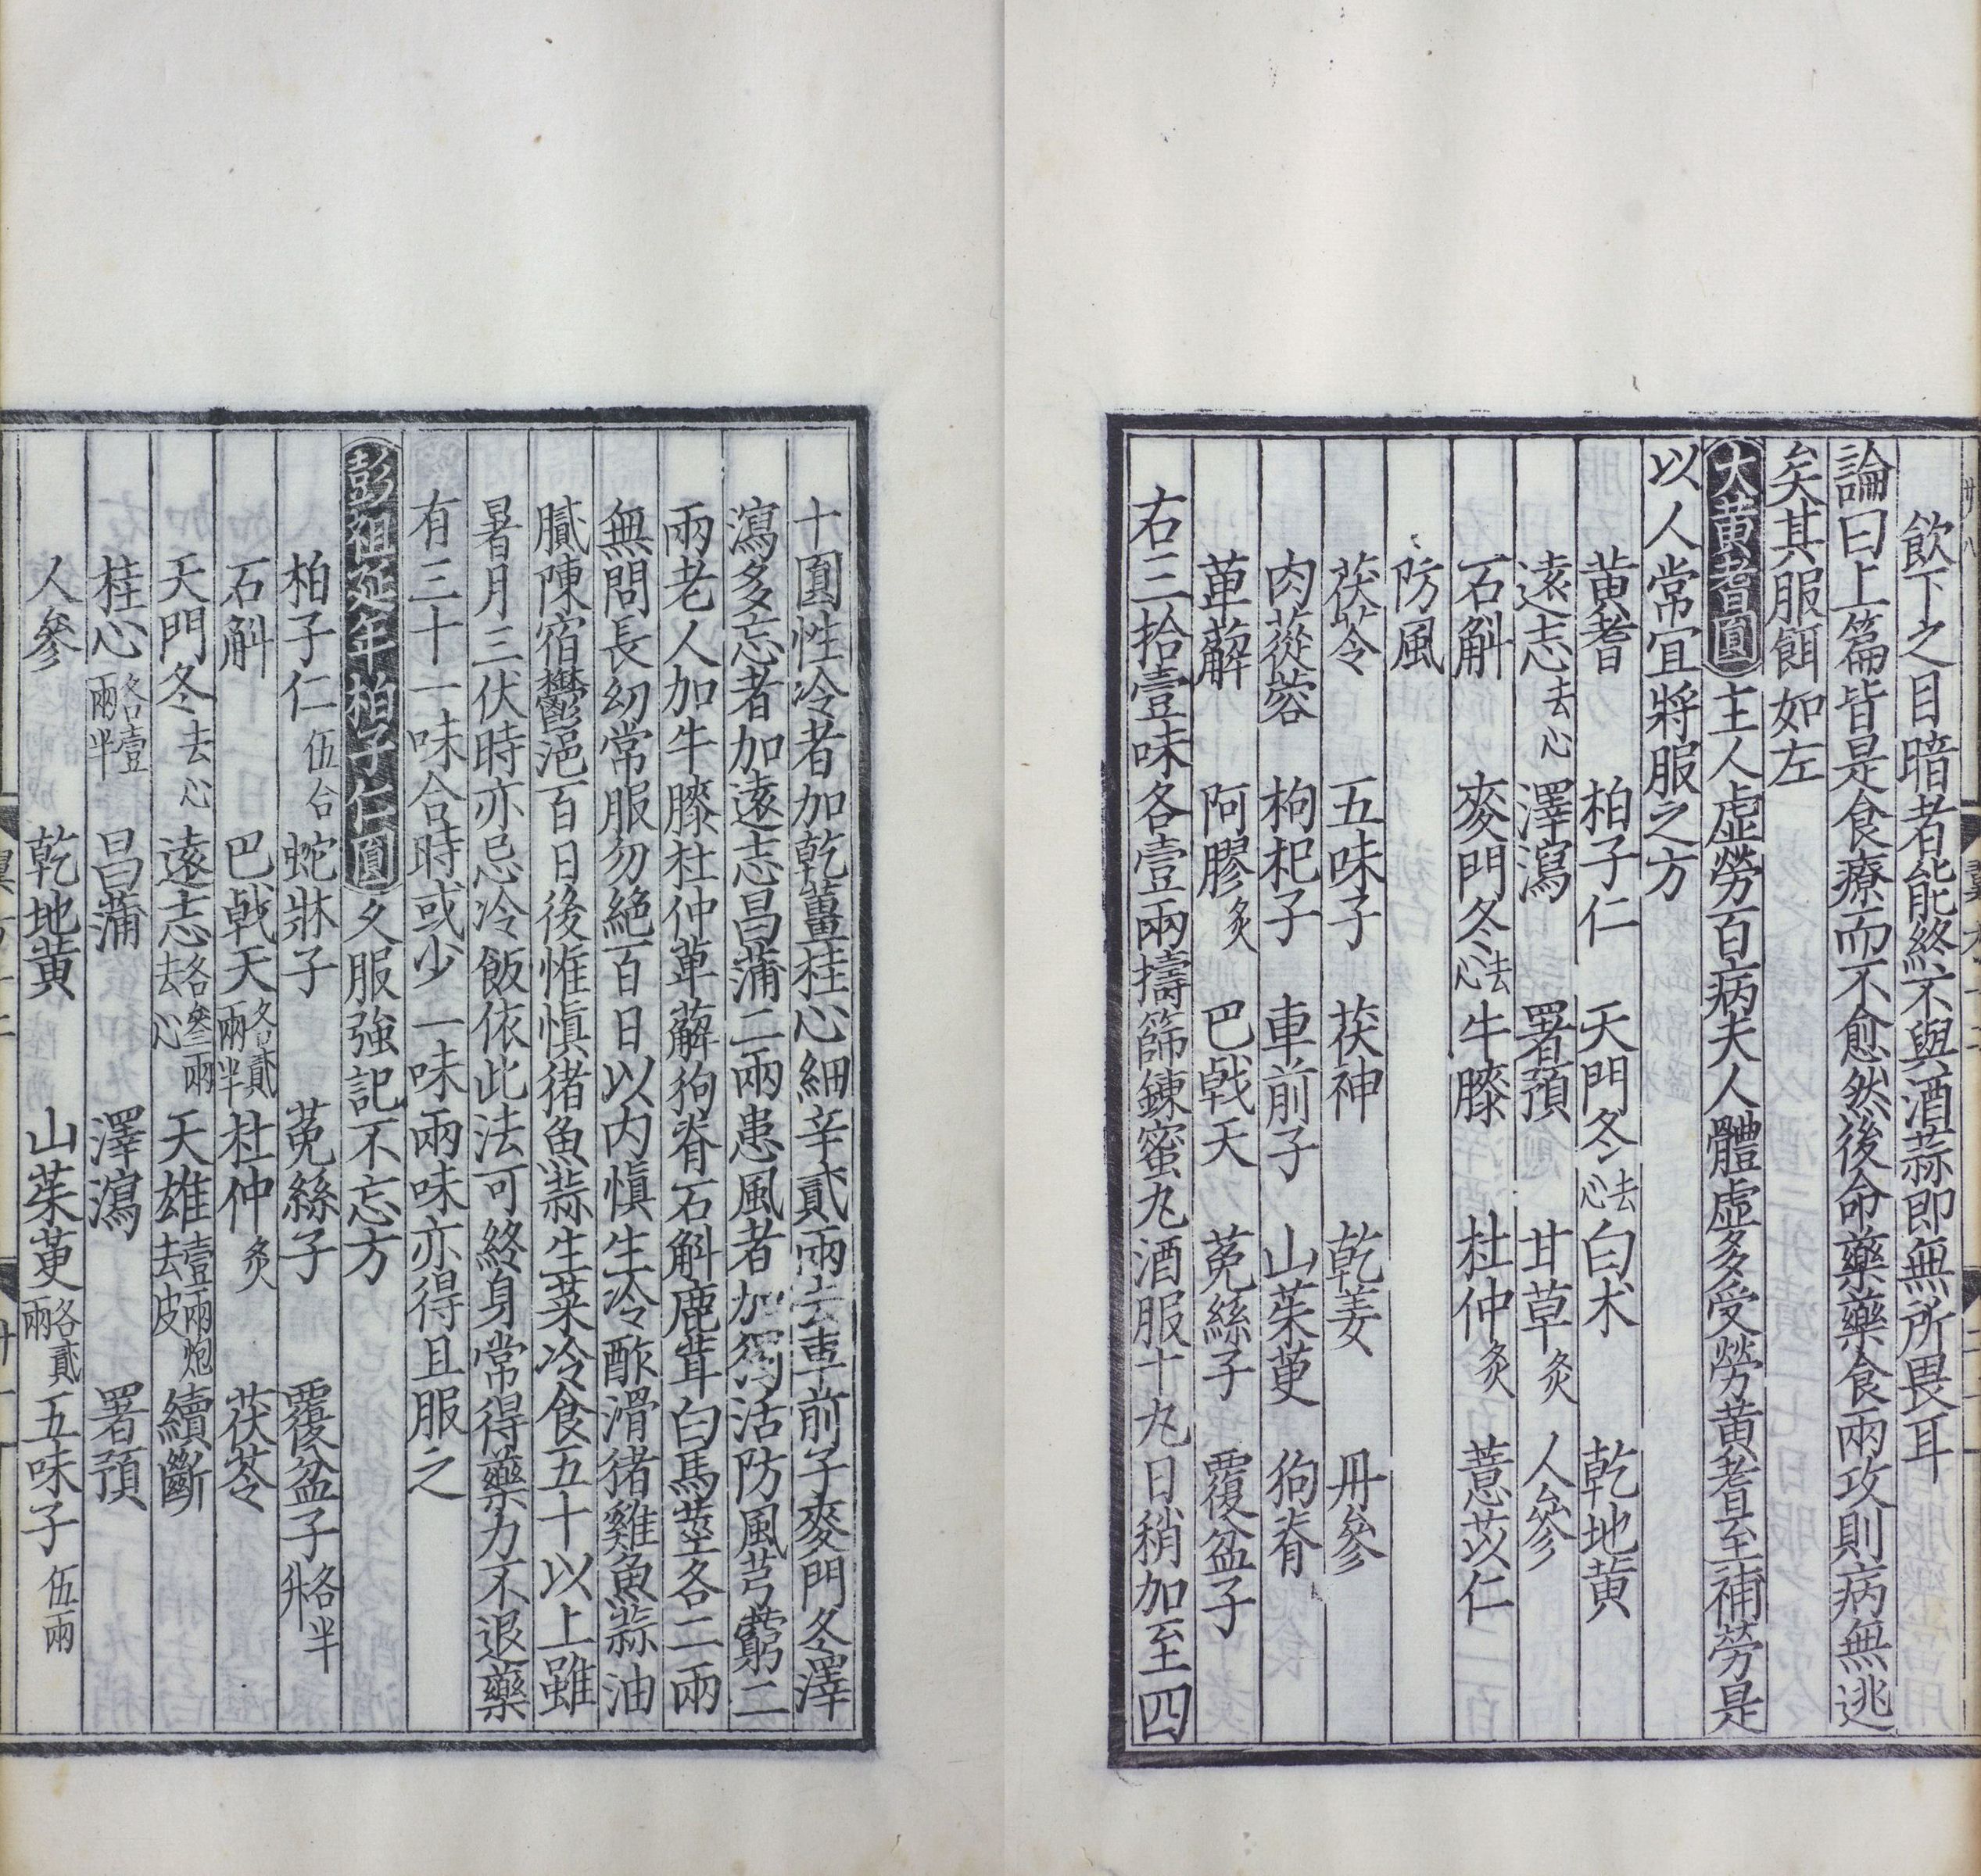 飲下之目暗者能終不與酒蒜即無所畏耳
論曰上篇皆是食療而不愈然後命藥藥食兩攻則病無逃
矣其服餌如左
大黄耆圓主人虛勞百病夫人體虛多受勞黄耆至補勞是
以人常宜將服之方
黄耆 柏子仁 天門冬去心 白术 乾地黄
遠志去心 澤瀉 署預 甘草炙 人參
石斛 麥門冬去心 牛膝 杜仲炙 薏苡仁
防風
茯苓 五味子 茯神 乾姜 丹參
肉蓯蓉 枸杞子 車前子 山茱萸 狗脊
萆薢 阿膠炙 巴戟天 菟絲子 覆盆子
右三拾壹味各壹兩擣篩鍊蜜丸酒服十丸日稍加至四
十圓性冷者加乾薑桂心細辛貳兩去車前子麥門冬澤
瀉多忘者加遠志昌蒲二兩患風者加獨活防風芎藭二
兩老人加牛膝杜仲萆薢狗脊石斛鹿茸白馬莖各二兩
無問長幼常服勿絶百日以内慎生冷酢滑猪雞魚蒜油
膩陳宿鬱浥百日後惟慎猪魚蒜生菜冷食五十以上雖
暑月三伏時亦忌冷飯依此法可終身常得藥力不退藥
有三十一味合時或少一味兩味亦得且服之
彭祖延年柏子仁圓久服強記不忘方
柏子仁伍合 蛇牀子 菟絲子 覆盆子各半升
石斛 巴戟天各貳兩半 杜仲炙 茯苓
天門冬去心 遠志各參兩去心 天雄壹兩炮去皮 續斷
桂心各壹兩半 昌蒲 澤瀉 署預
人參 乾地黄 山茱萸各貳兩 五味子伍兩